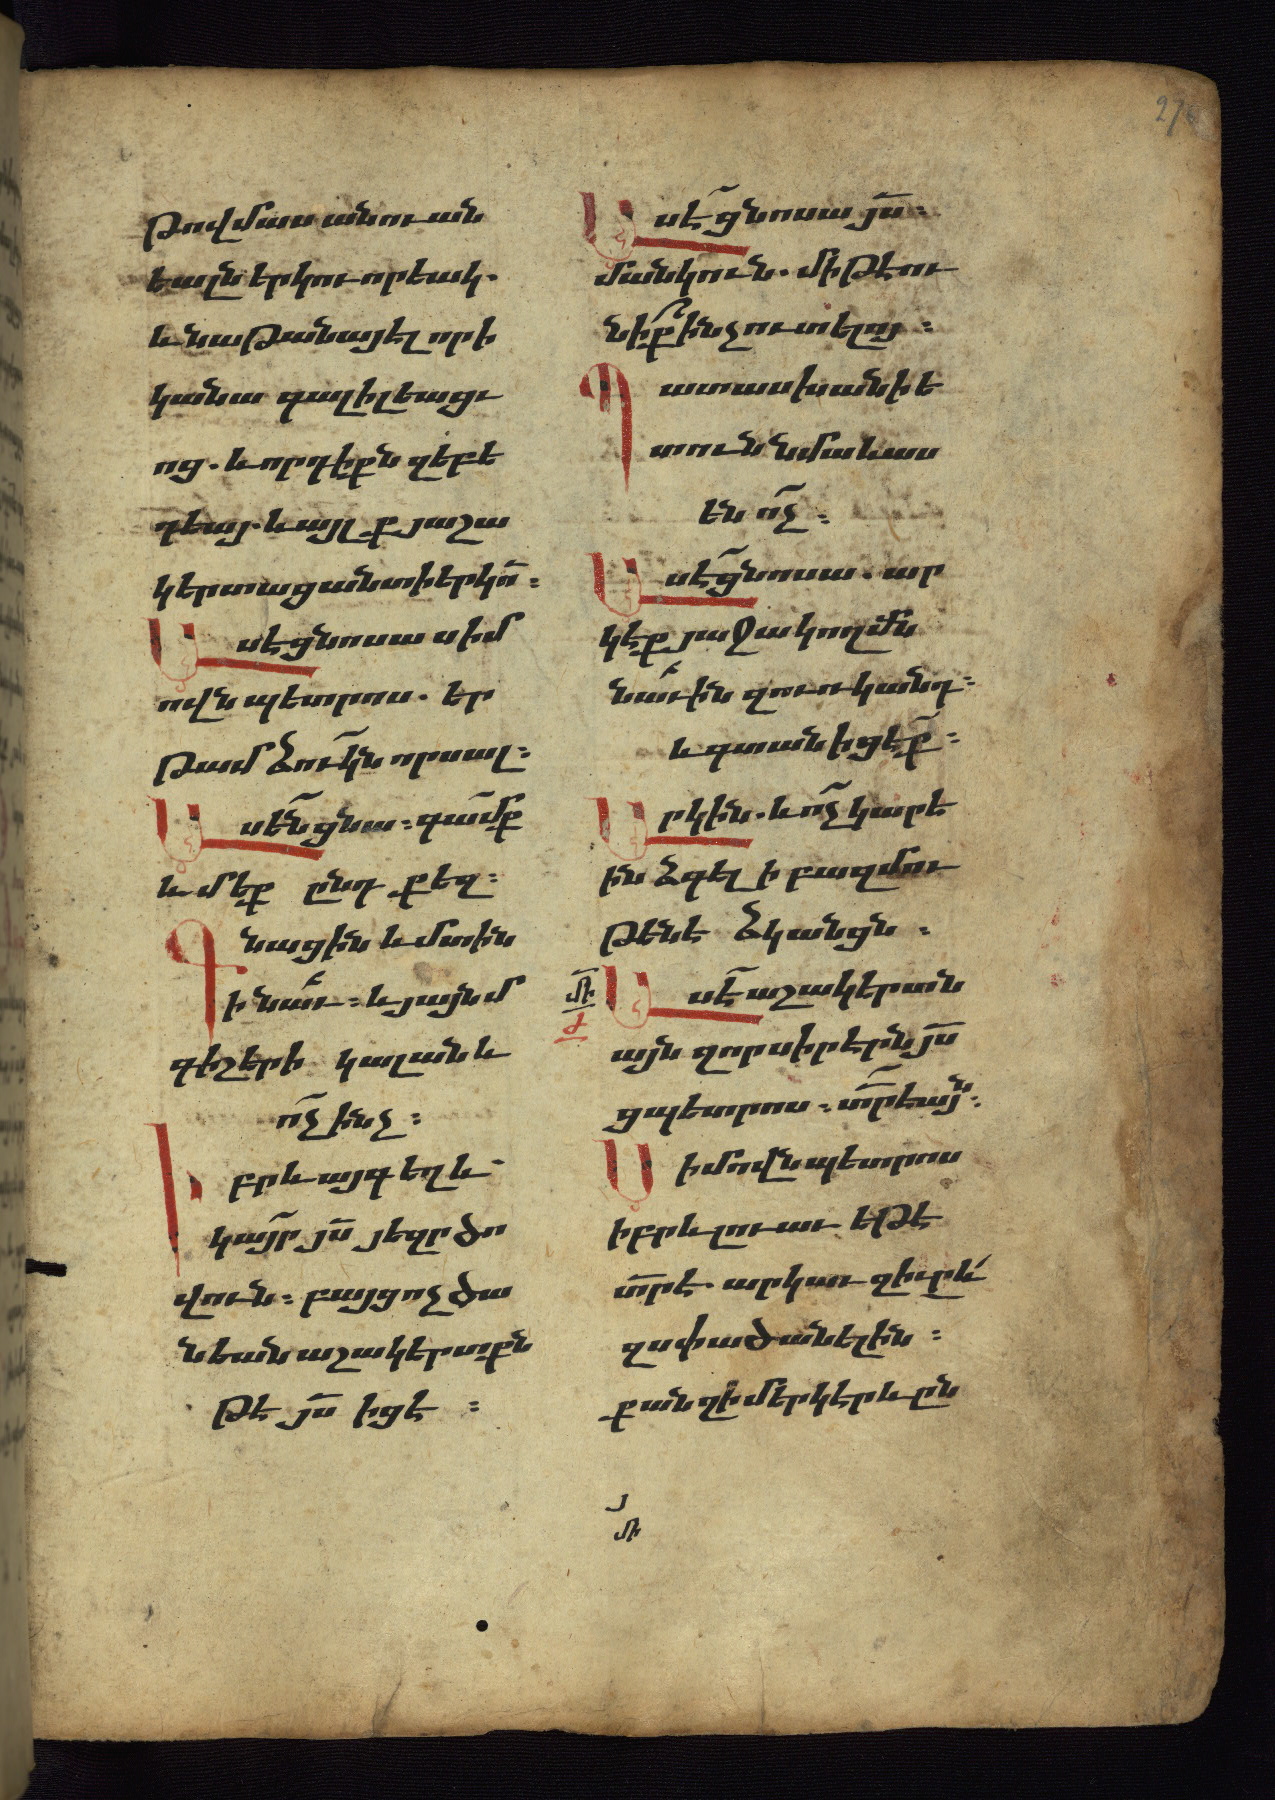 Թովմաս անուան
եալն երկուորեակ.
և նաթանայէլ որ ի
կանա գալիլեացւ
ոց. և որդիքն զեբե
դեայ. և այլք յաշա
կերտաց անտի երկո՟ւ:
Ասէ ցնոսա սիմ
ովն պետրոս. եր
թամ ձուկն որսալ:
Ասե՟ն ցնա: գամք
և մեք ընդ քեզ:
Գնացին և մտին
ի նաւ: և յայնմ
գիշերի կալան և
ո՟չ ինչ:
Իբրև այգ եղև
կայր յ՟ս յեզր ծո
վուն: բայց ոչ ծա
նեան աշակերտքն
թէ յ՟ս իցէ:
Ասէ ցնոսա յ՟ս:
մանկունք. միթէ ու
նի՞ք ինչ ուտելոյ:
Պատասխանի ե
տուն նմա և աս
են ո՟չ:
Ասէ ցնոսա. ար
կէք յաջակողմն
նաւին զուռկանդ:
և գտանիցէք:
Արկին. և ո՟չ կարե
ին ձգել ի բազմու
թենէ ձկանցն:
Ասէ աշակերտն
այն զոր սիրէրն յ՟ս
ցպետրոս: տ՟րեայն:
Սիմովն պետրոս
իբրև լուաւ եթէ
տ՟ր է. արկաւ զիւրև
զսփածանելին:
քանզի մերկ էր և ըն